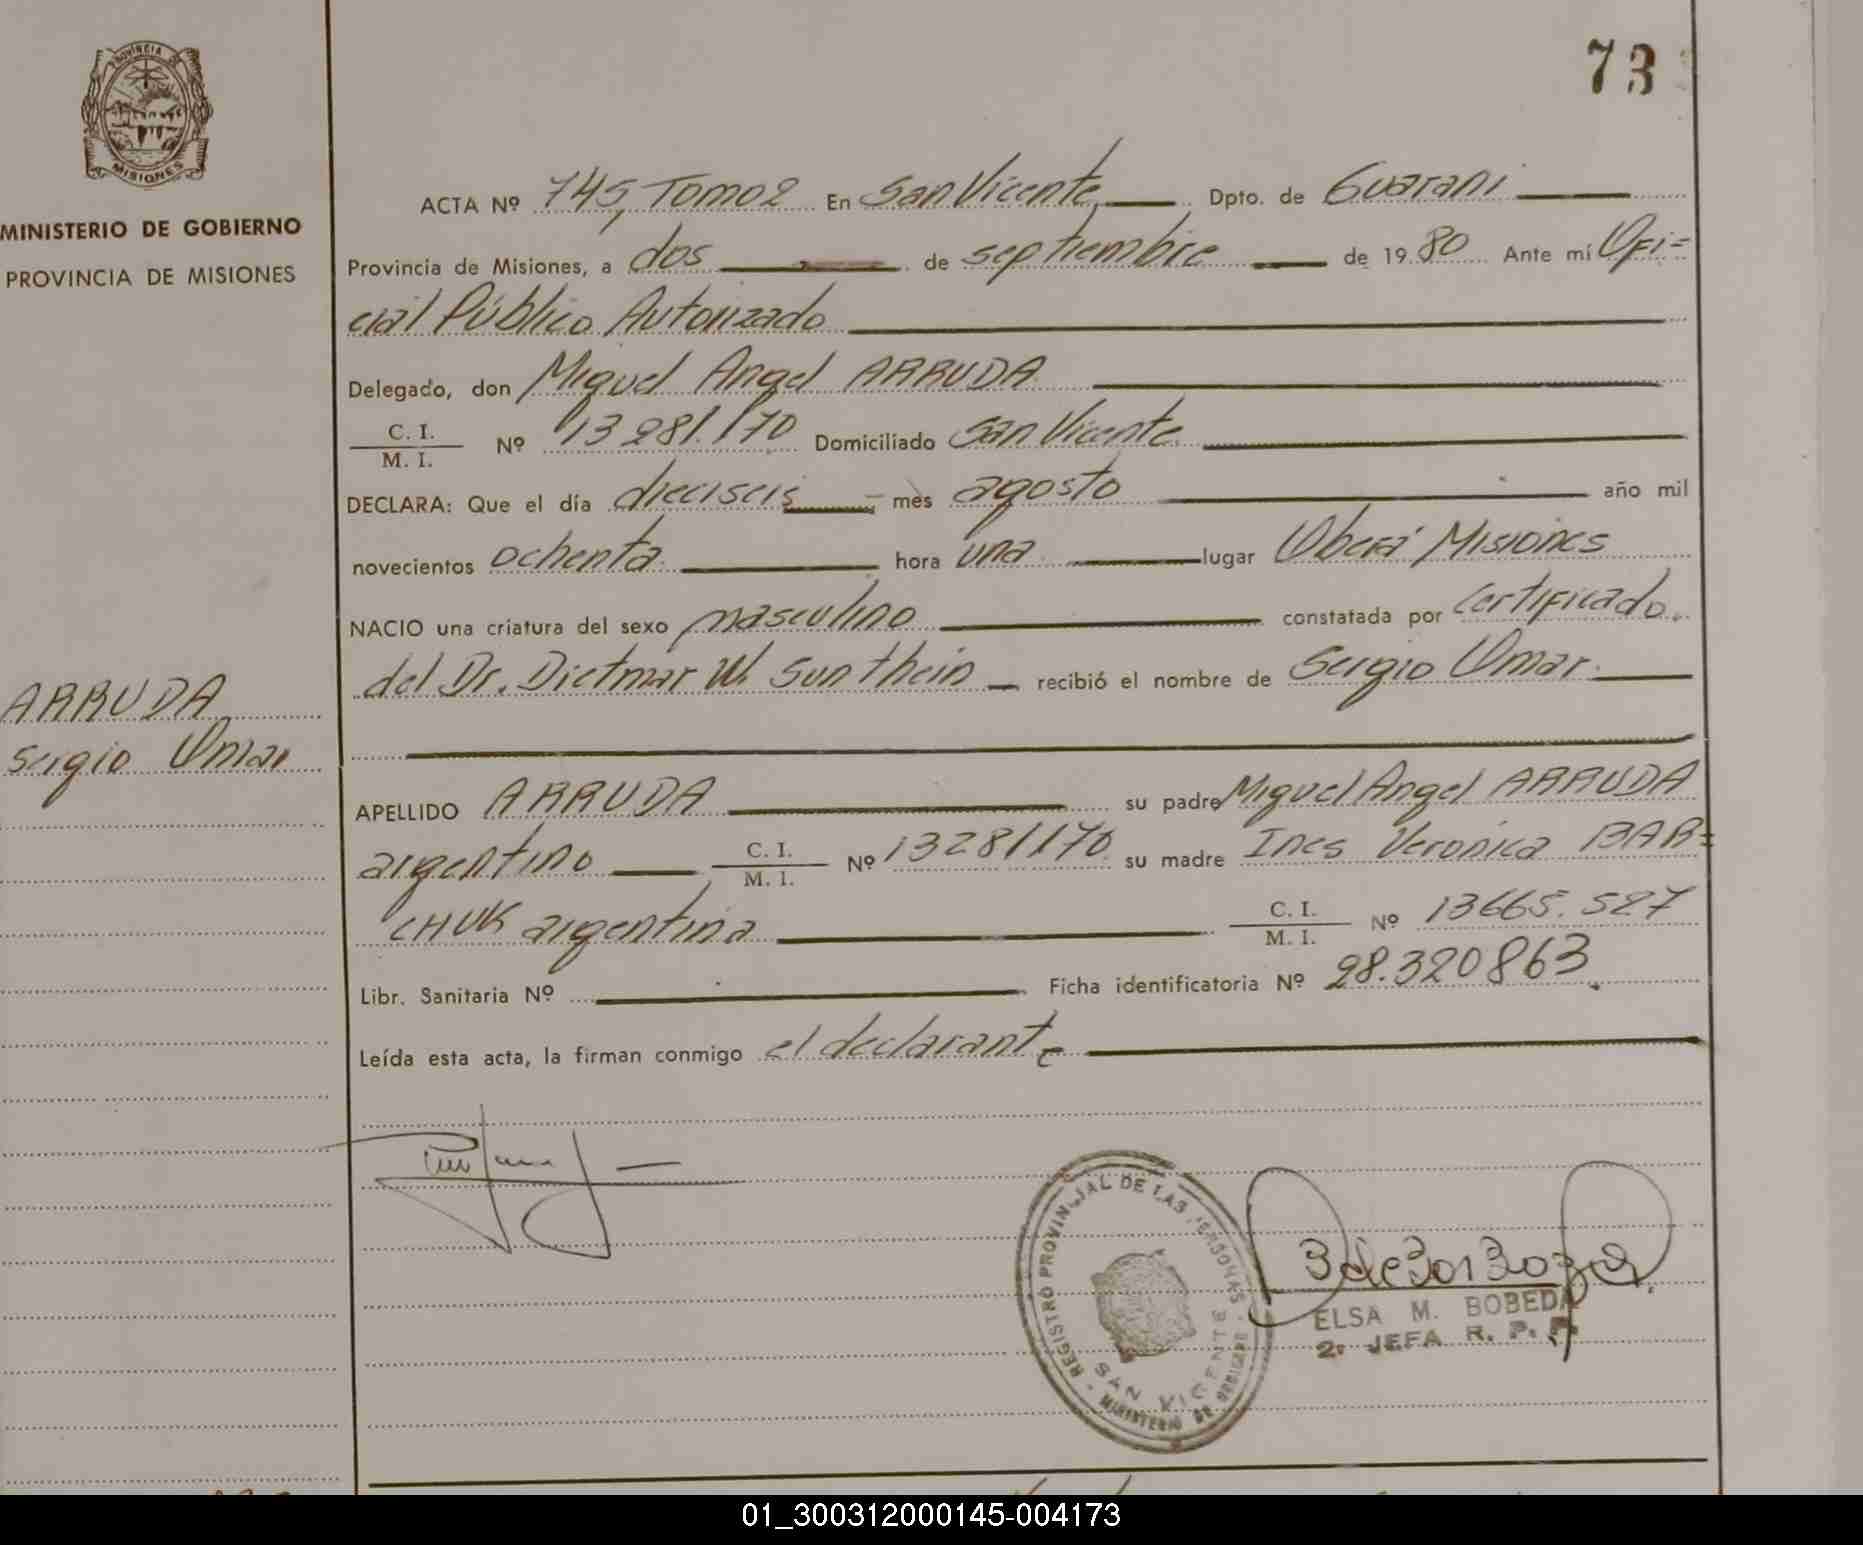 73
PROVINCIA DE
MISIONES
MINISTERIO DE GOBIERNO
PROVINCIA DE MISIONES
ACTA Nº 745, Tomo 2 En San Vicente Dpto. de Guarani
Provincia de Misiones, a dos de septiembre de 1980 Ante mí Ofi=
cial Público Autorizado
Delegado, don Miguel Angel ARRUDA
C. I.
M. I. Nº 13281.170 Domiciliado San Vicente
DECLARA: Que el día dieciseis mes agosto año mil
novecientos ochenta hora una lugar Oberá Misiones
NACIO una criatura del sexo masculino constatada por certificado
del Dr. Dietmar W. Sunthein recibió el nombre de Sergio Omar
ARRUDA
Sergio Omar
APELLIDO ARRUDA su padre Miguel Angel ARRUDA
argentino C. I.
M. I. Nº 13281170 su madre Ines Veronica BAR=
CHUK argentina C. I.
M. I. Nº 13665.527
Libr. Sanitaria Nº Ficha identificatoria Nº 28.320863
Leída esta acta, la firman conmigo el declarante
REGISTRO PROVINCIAL DE LAS PERSONAS
SAN VICENTE
MINISTERIO DE GOBIERNO
ELSA M. BOBEDA
2º JEFA R. P. P.
01_300312000145-004173